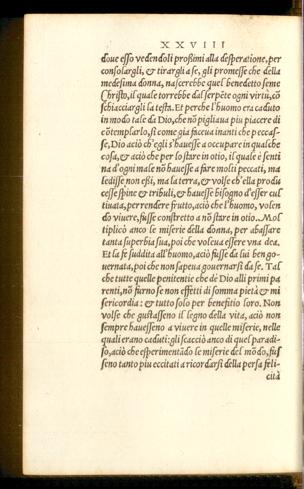 XXVIII
doue esso vedendoli prossimi alla desperatione, per
consolargli, & tirargli a se, gli promesse che della
medesima donna, nascerebbe quel benedetto seme
Christo, il quale torrebbe dal serpēte ogni virtù, cō
schiacciargli la testa. Et perche l'huomo era caduto
in modo tale da Dio, che nō pigliaua piu piacere di
cōtemplarlo, si come gia faceua inanti che peccas-
se, Dio acciò ch'egli s'hauesse a occupare in qualche
cosa, & aciò che per lo stare in otio, il quale è senti
na d'ogni male nō hauesse a fare molti peccati, ma
ledisse non essi, ma la terra, & volse ch'ella produ
cesse spine & tribuli, & hauesse bisogno d'esser cul
tiuata, per rendere frutto, aciò che l'huomo, volen
do viuere, fusse constretto a nō stare in otio. Mol
tiplicò anco le miserie della donna, per abassare
tanta superbia sua, poi che voleua essere vna dea.
Et la fe suddita all'huomo, aciò fusse da lui ben go-
uernata, poi che non sapeua gouernarsi da se. Tal
che tutte quelle penitentie che dè Dio alli primi pa
renti, nō furno se non effetti di somma pietà & mi
sericordia: & tutto solo per benefitio loro. Non
volse che gustasseno il legno della vita, aciò non
sempre hauesseno a viuere in quelle miserie, nelle
quali erano caduti: gli scacciò anco di quel paradi-
so, aciò che esperimentādo le miserie del mōdo, fus
seno tanto piu eccitati a ricordarsi della persa feli-
cità